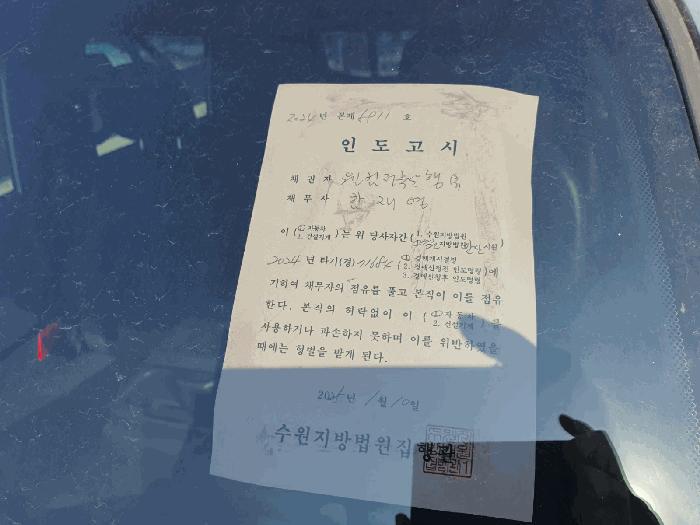 2024년 본제 6911 호
인 도 고 시
채 권 자
채 무 자 한
이 (① 자동차 2. 건설기계) 는 위 당사자간 (1. 수원지방법원 ② 수원지방법원안산지원)
2024 년 타기(경) (① 경매개시결정 2. 경매신청전 인도명령 3. 경매신청후 인도명령) 에
기하여 채무자의 점유를 풀고 본직이 이를 점유
한다. 본직의 허락없이 이 (① 자동차 2. 건설기계) 를
사용하거나 파손하지 못하며 이를 위반하였을
때에는 형벌을 받게 된다.
2025년 1월 10일
수원지방법원집행관